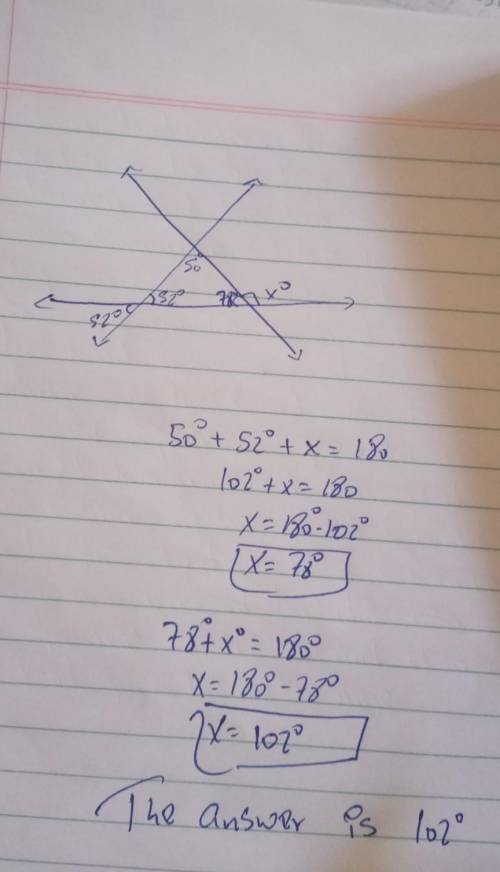 50°
52°
78
x°
52°
50° + 52° + x = 180
102° + x = 180
x = 180° - 102°
x = 78°
78° + x° = 180°
x = 180° - 78°
x = 102°
The answer is 102°